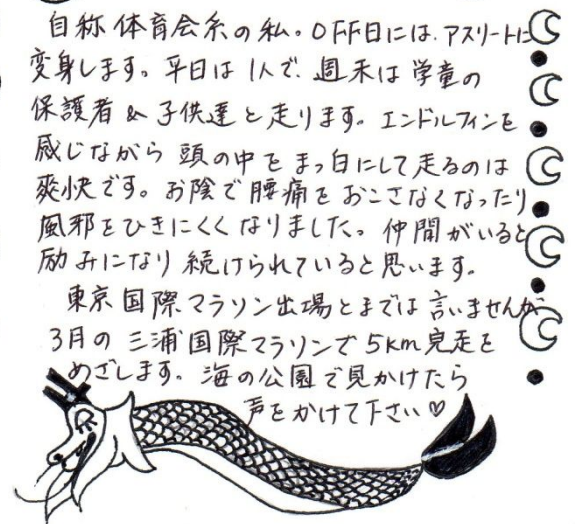 自称体育会系の私。OFF日には、アスリートに
変身します。平日は1人で、週末は学童の
保護者&子供達と走ります。エンドルフィンを
感じながら頭の中をまっ白にして走るのは
爽快です。お陰で腰痛をおこさなくなったり
風邪をひきにくくなりました。仲間がいると
励みになり続けられていると思います。
東京国際マラソン出場とまでは言いませんが
3月の三浦国際マラソンで5km完走を
めざします。海の公園で見かけたら
声をかけて下さい♡